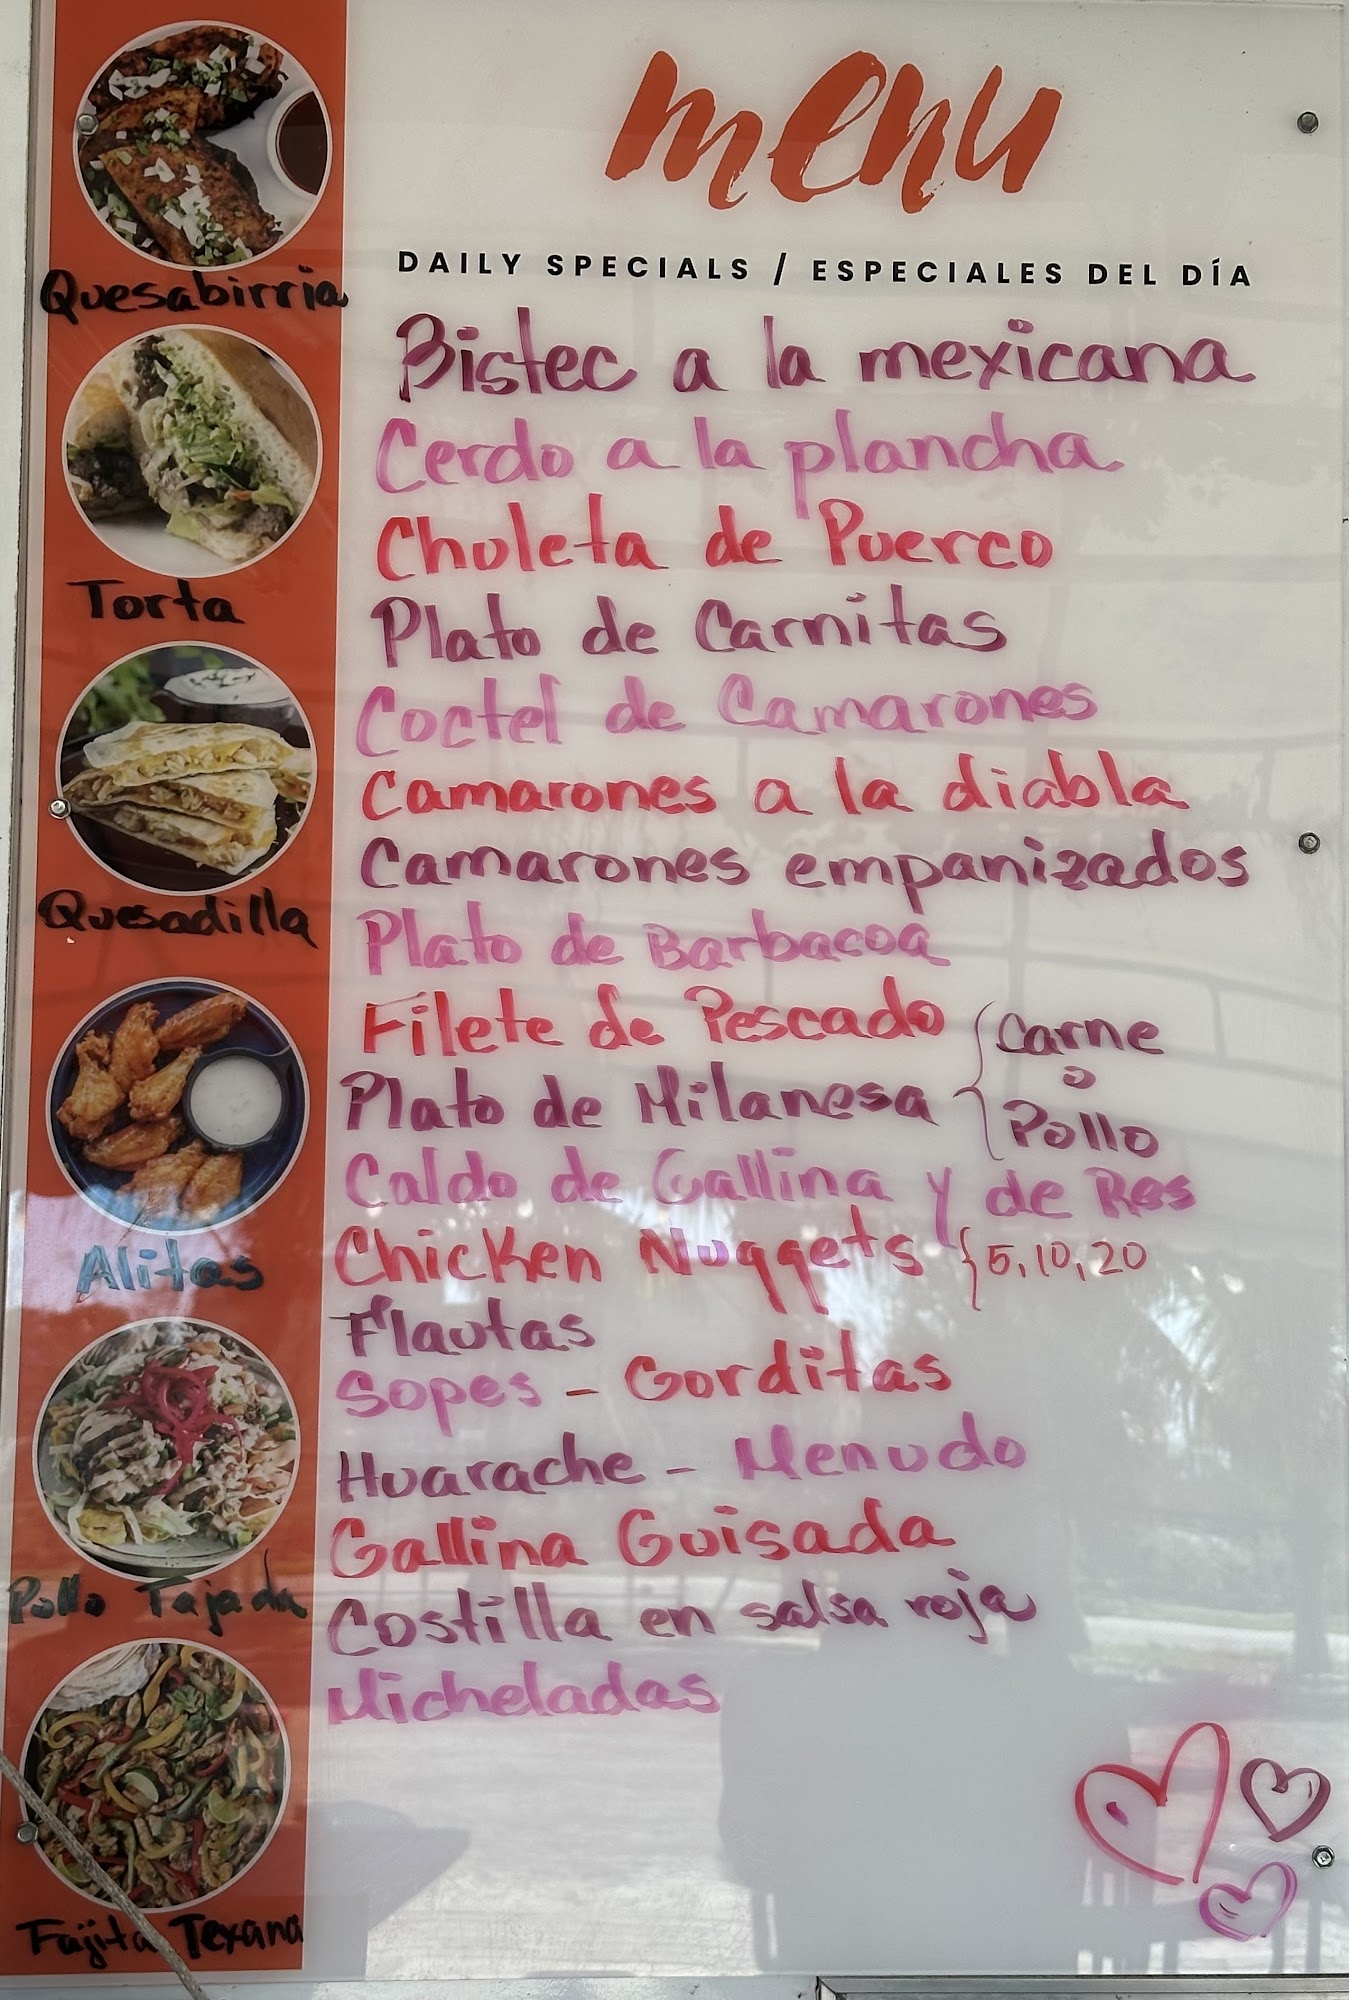 menu
DAILY SPECIALS / ESPECIALES DEL DÍA
Quesabirria
Torta
Quesadilla
Alitas
Pollo Tajada
Fajita Texana
Bistec a la mexicana
Cerdo a la plancha
Chuleta de Puerco
Plato de Carnitas
Coctel de Camarones
Camarones a la diabla
Camarones empanizados
Plato de Barbacoa
Filete de Pescado
Plato de Milanesa { Carne o Pollo
Caldo de Gallina y de Res
Chicken Nuggets { 5, 10, 20
Flautas
Sopes - Gorditas
Huarache - Menudo
Gallina Guisada
Costilla en salsa roja
Micheladas